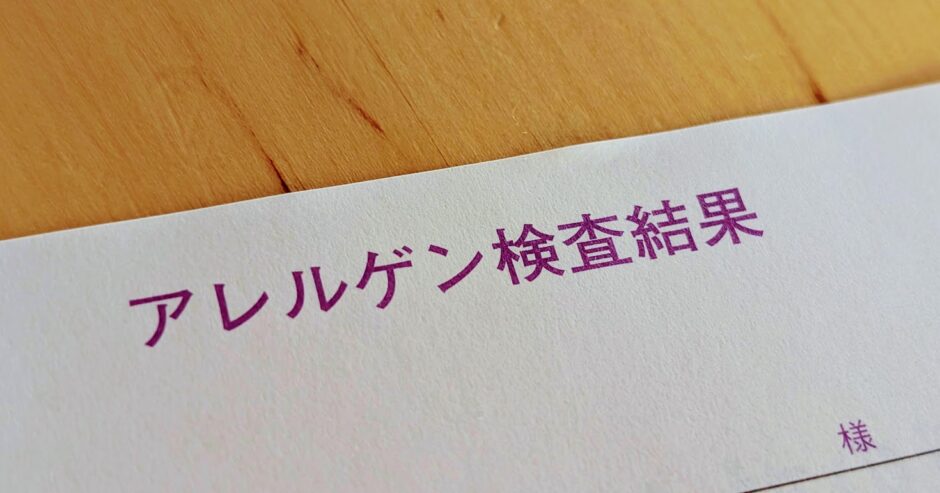 アレルゲン検査結果
様